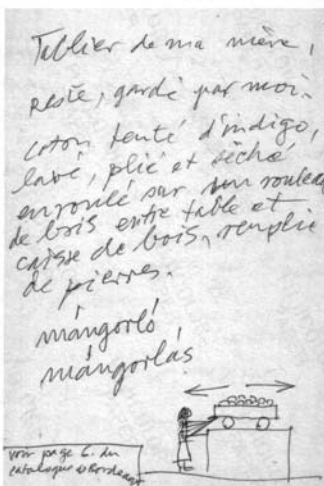 Tablier de ma mère,
resté, gardé par moi.
coton tenté d'indigo,
lavé, plié et sèché
enroulé sur un rouleau
de bois entre table et
caisse de bois, remplie
de pierres.
mángorló,
mángorlás
voir page 6. du
catalogue Bordeaux